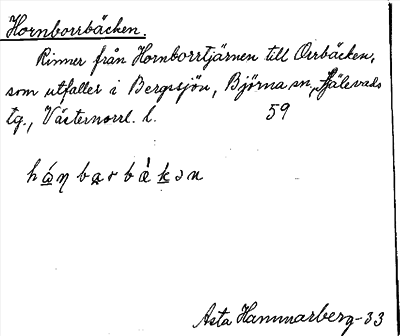 Hornborrbäcken.
Rinner från Hornborrtjärnen till Orrbäcken,
som utfaller i Bergssjön, Björna sn, Själevads
tg., Västernorrl. l. 59
Asta Hammarberg-33